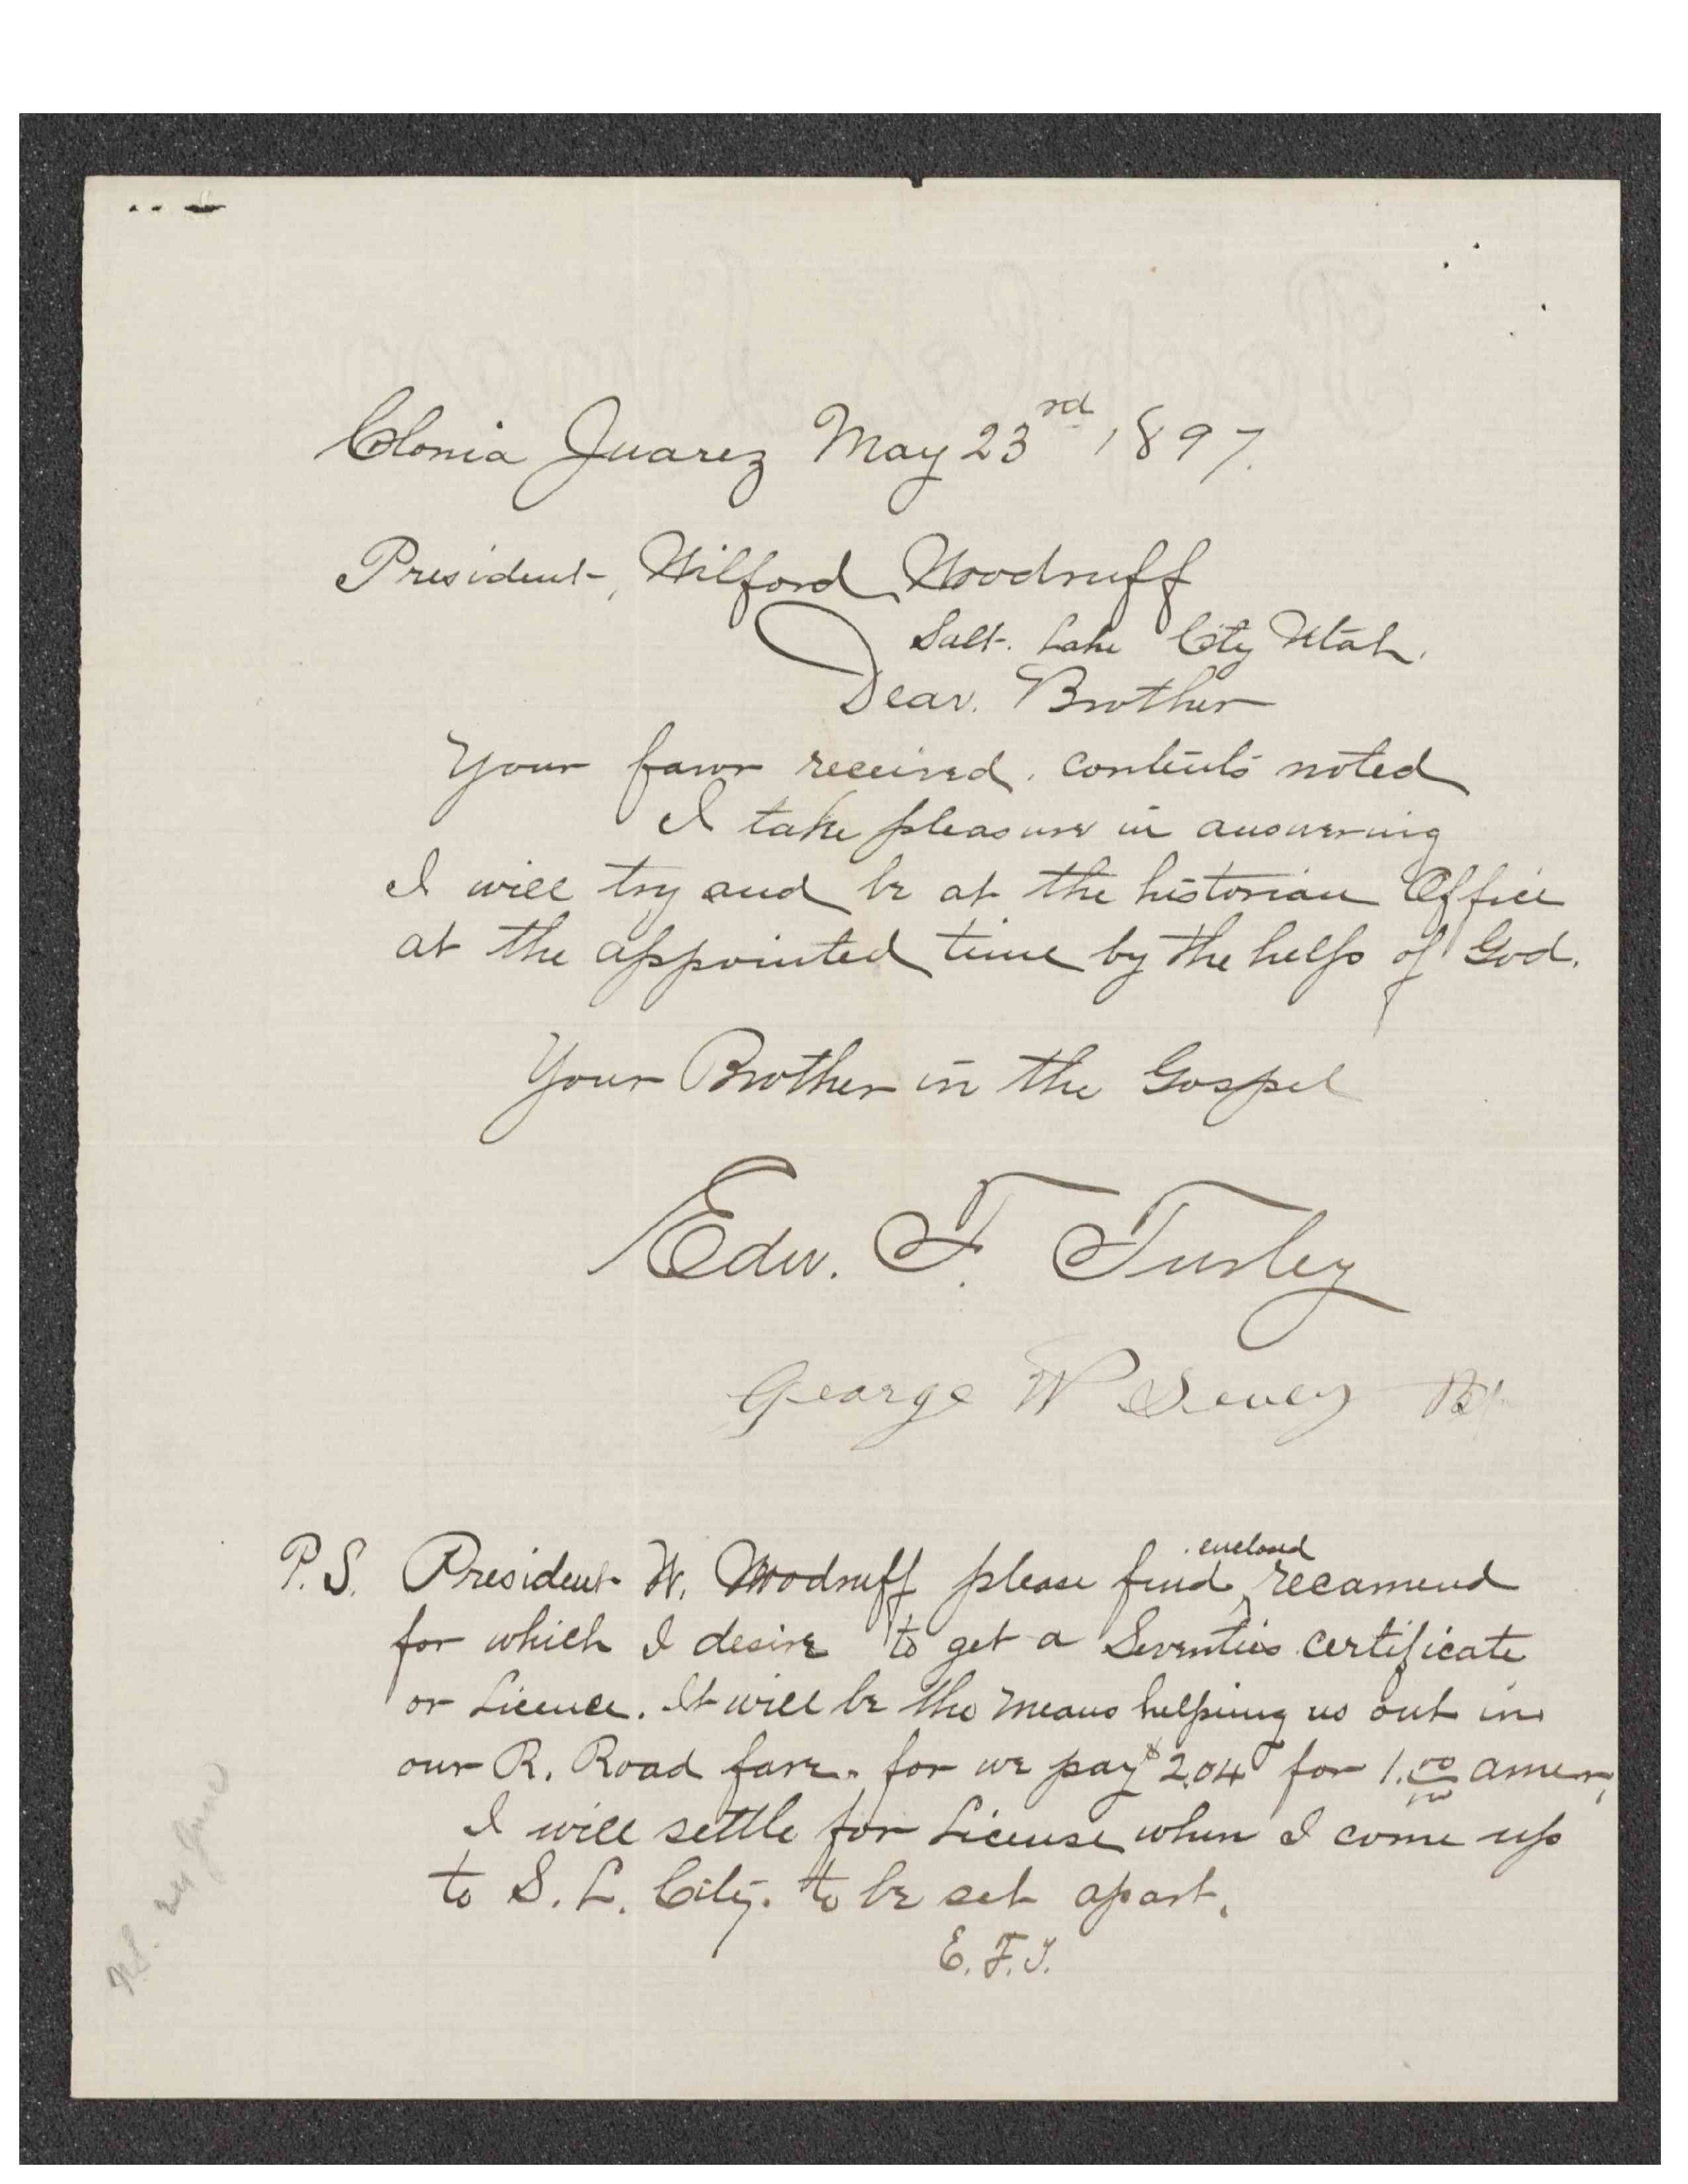 Colonia Juarez May 23rd 1897.
President, Wilford Woodruff
Salt. Lake City Utah.
Dear. Brother
Your favor received. contents noted
I take pleasure in answering
I will try and be at the historian Office
at the appointed time by the help of God.
Your Brother in the Gospel
Edw. F. Turley
George W Sevey Bp
enclosed
P.S. President W. Woodruff please find recamend
for which I desire to get a Seventies certificate
or Licence. It will be the means helping us out in
our R. Road fare. for we pay $2.04 for 1.00 amer,
I will settle for License when I come up
to S. L. City. to be set apart.
E. F. T.